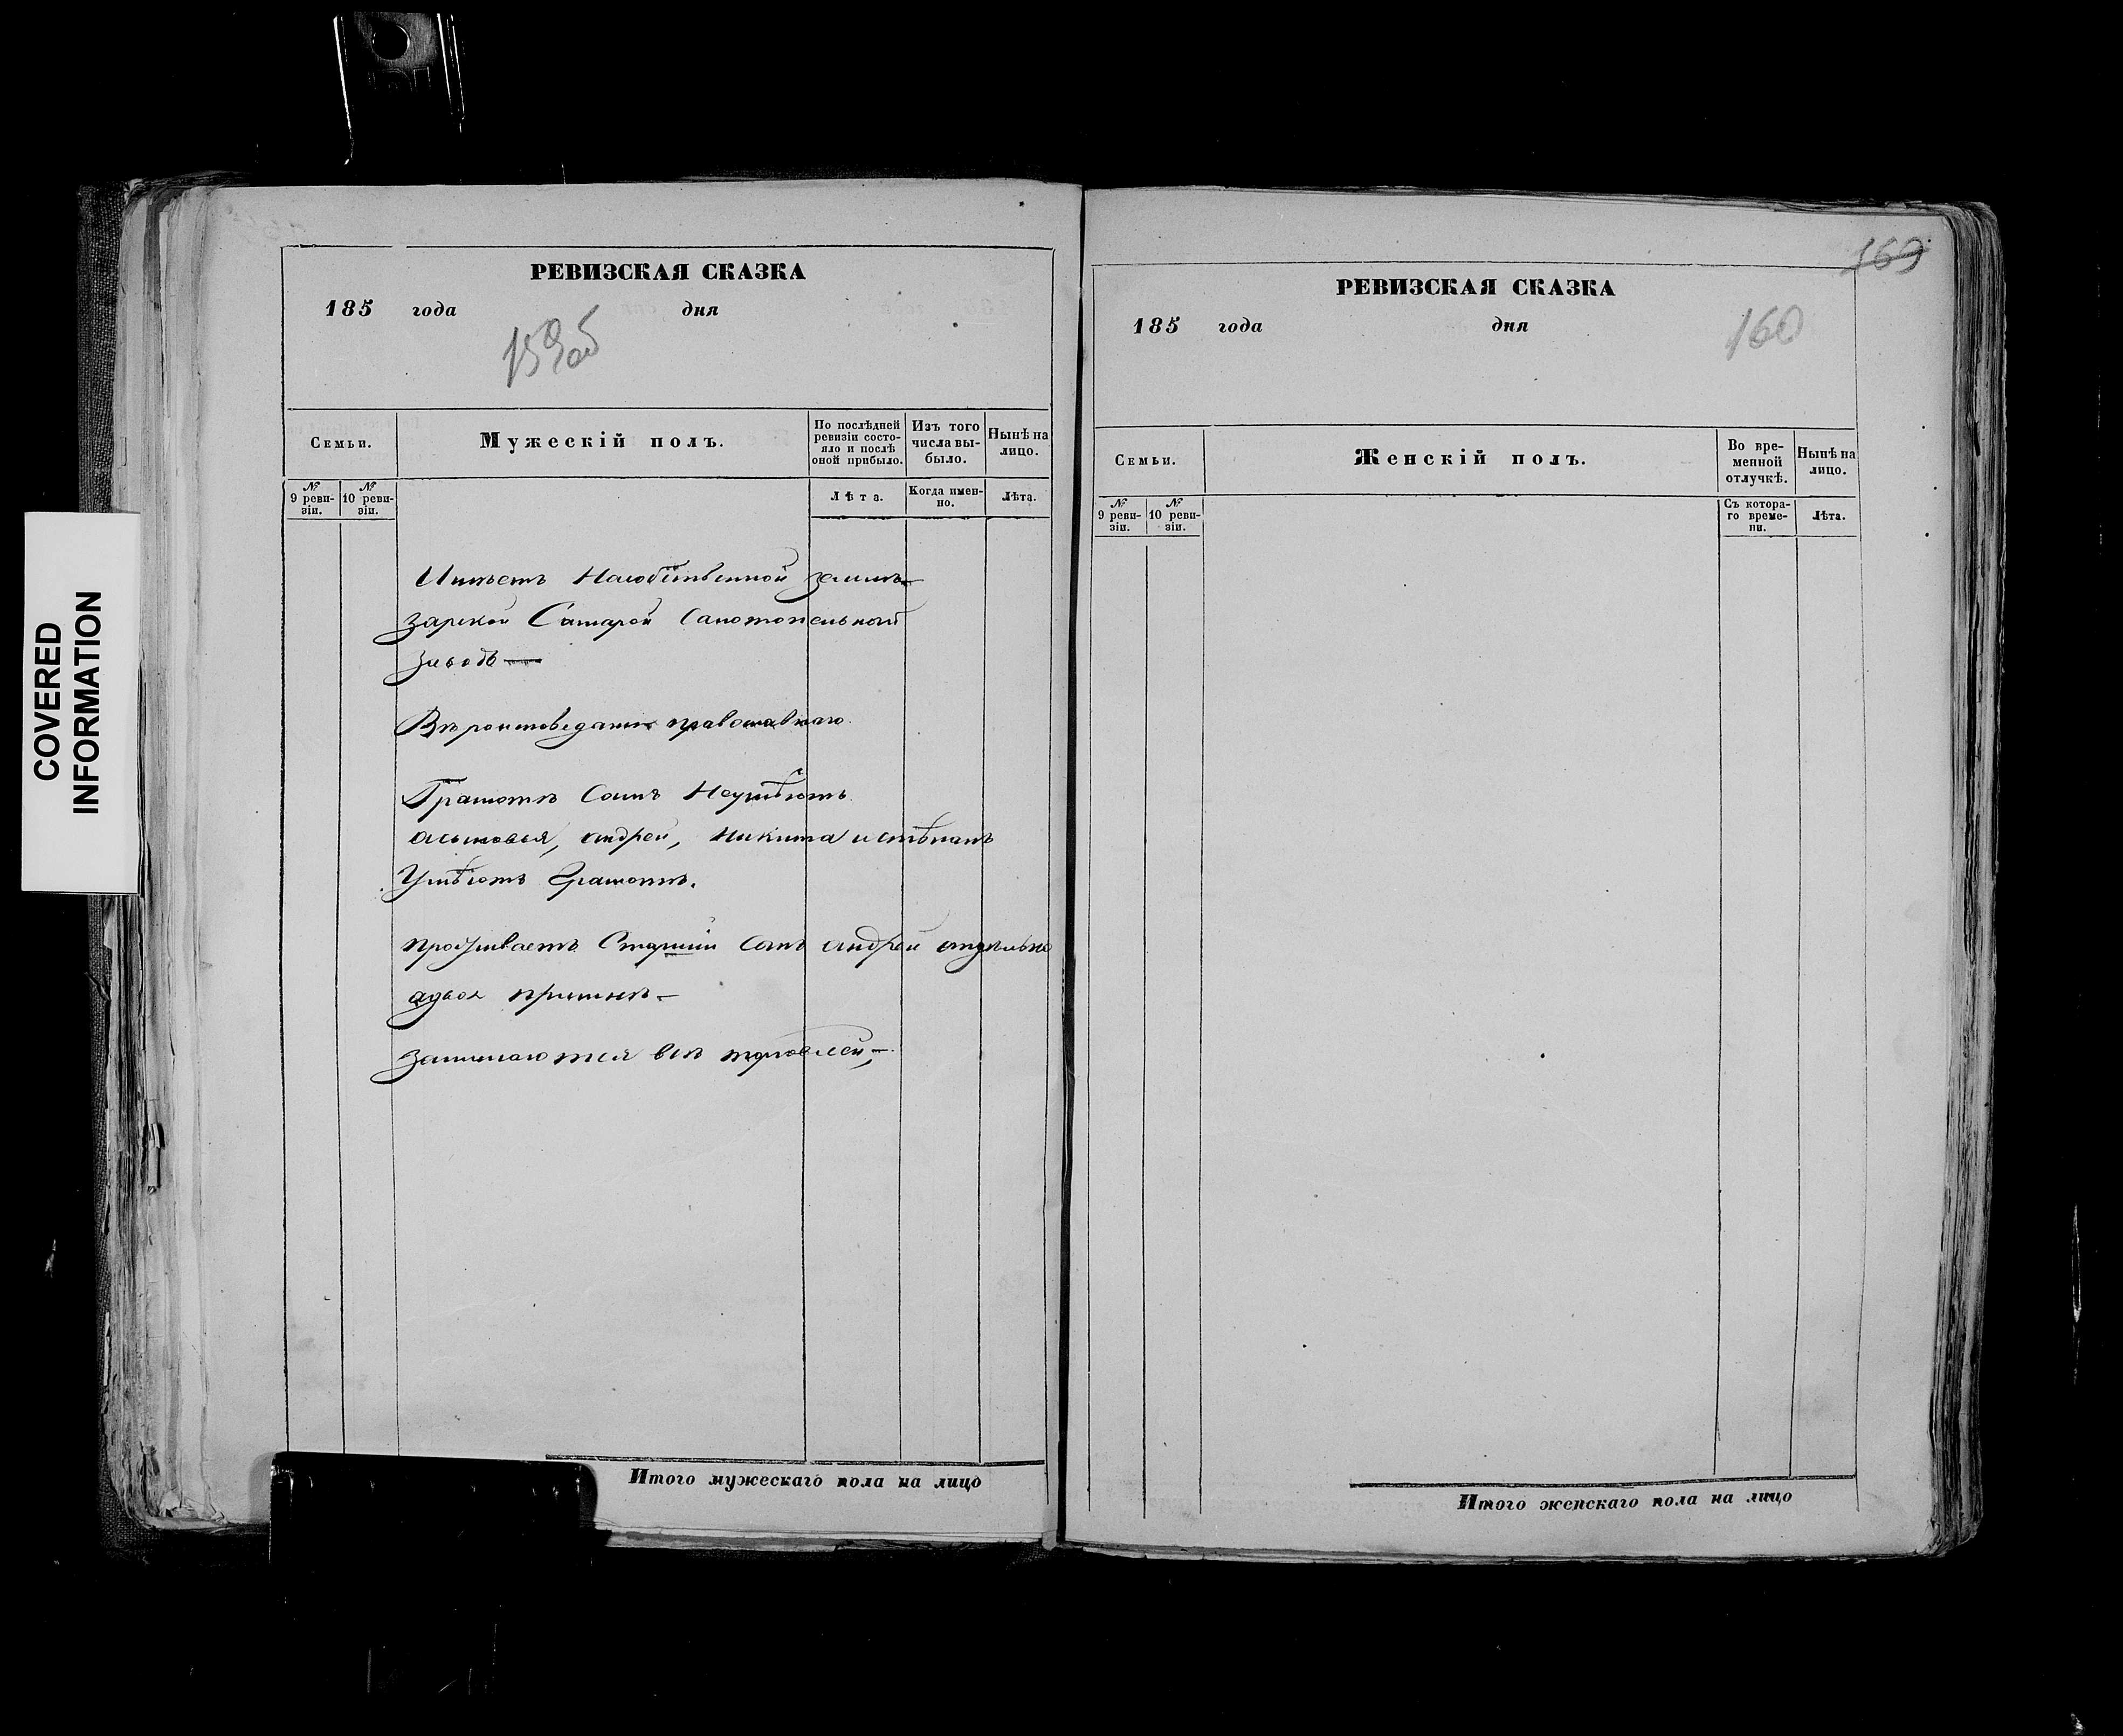 COVERED
INFORMATION
РЕВИЗСКАЯ СКАЗКА
185 года дня
159об
Семьи.
Мужескій полъ.
По послѣдней ревизіи состояло и послѣ оной прибыло.
Изъ того числа выбыло.
Нынѣ на лицо.
№ 9 ревизіи.
№ 10 ревизіи.
Лѣта.
Когда именно.
Лѣта.
Имѣетъ Насобственной земли
Салотопельной
заводъ
Вѣроисповеданія православнаго
Грамотѣ Самъ Неумѣютъ
асыновья, андрей, Никита и стѣпанъ
Умѣютъ Грамотѣ.
проживаетъ Старшій Сынъ андрей отдѣльно
адвоя примнѣ
Занимаются всѣ торговлей
Итого мужескаго пола на лицо
169
РЕВИЗСКАЯ СКАЗКА
185 года дня
160
Семьи.
Женскій полъ.
Во временной отлучкѣ.
Нынѣ на лицо.
№ 9 ревизіи.
№ 10 ревизіи.
Съ котораго времени.
Лѣта.
Итого женскаго пола на лицо